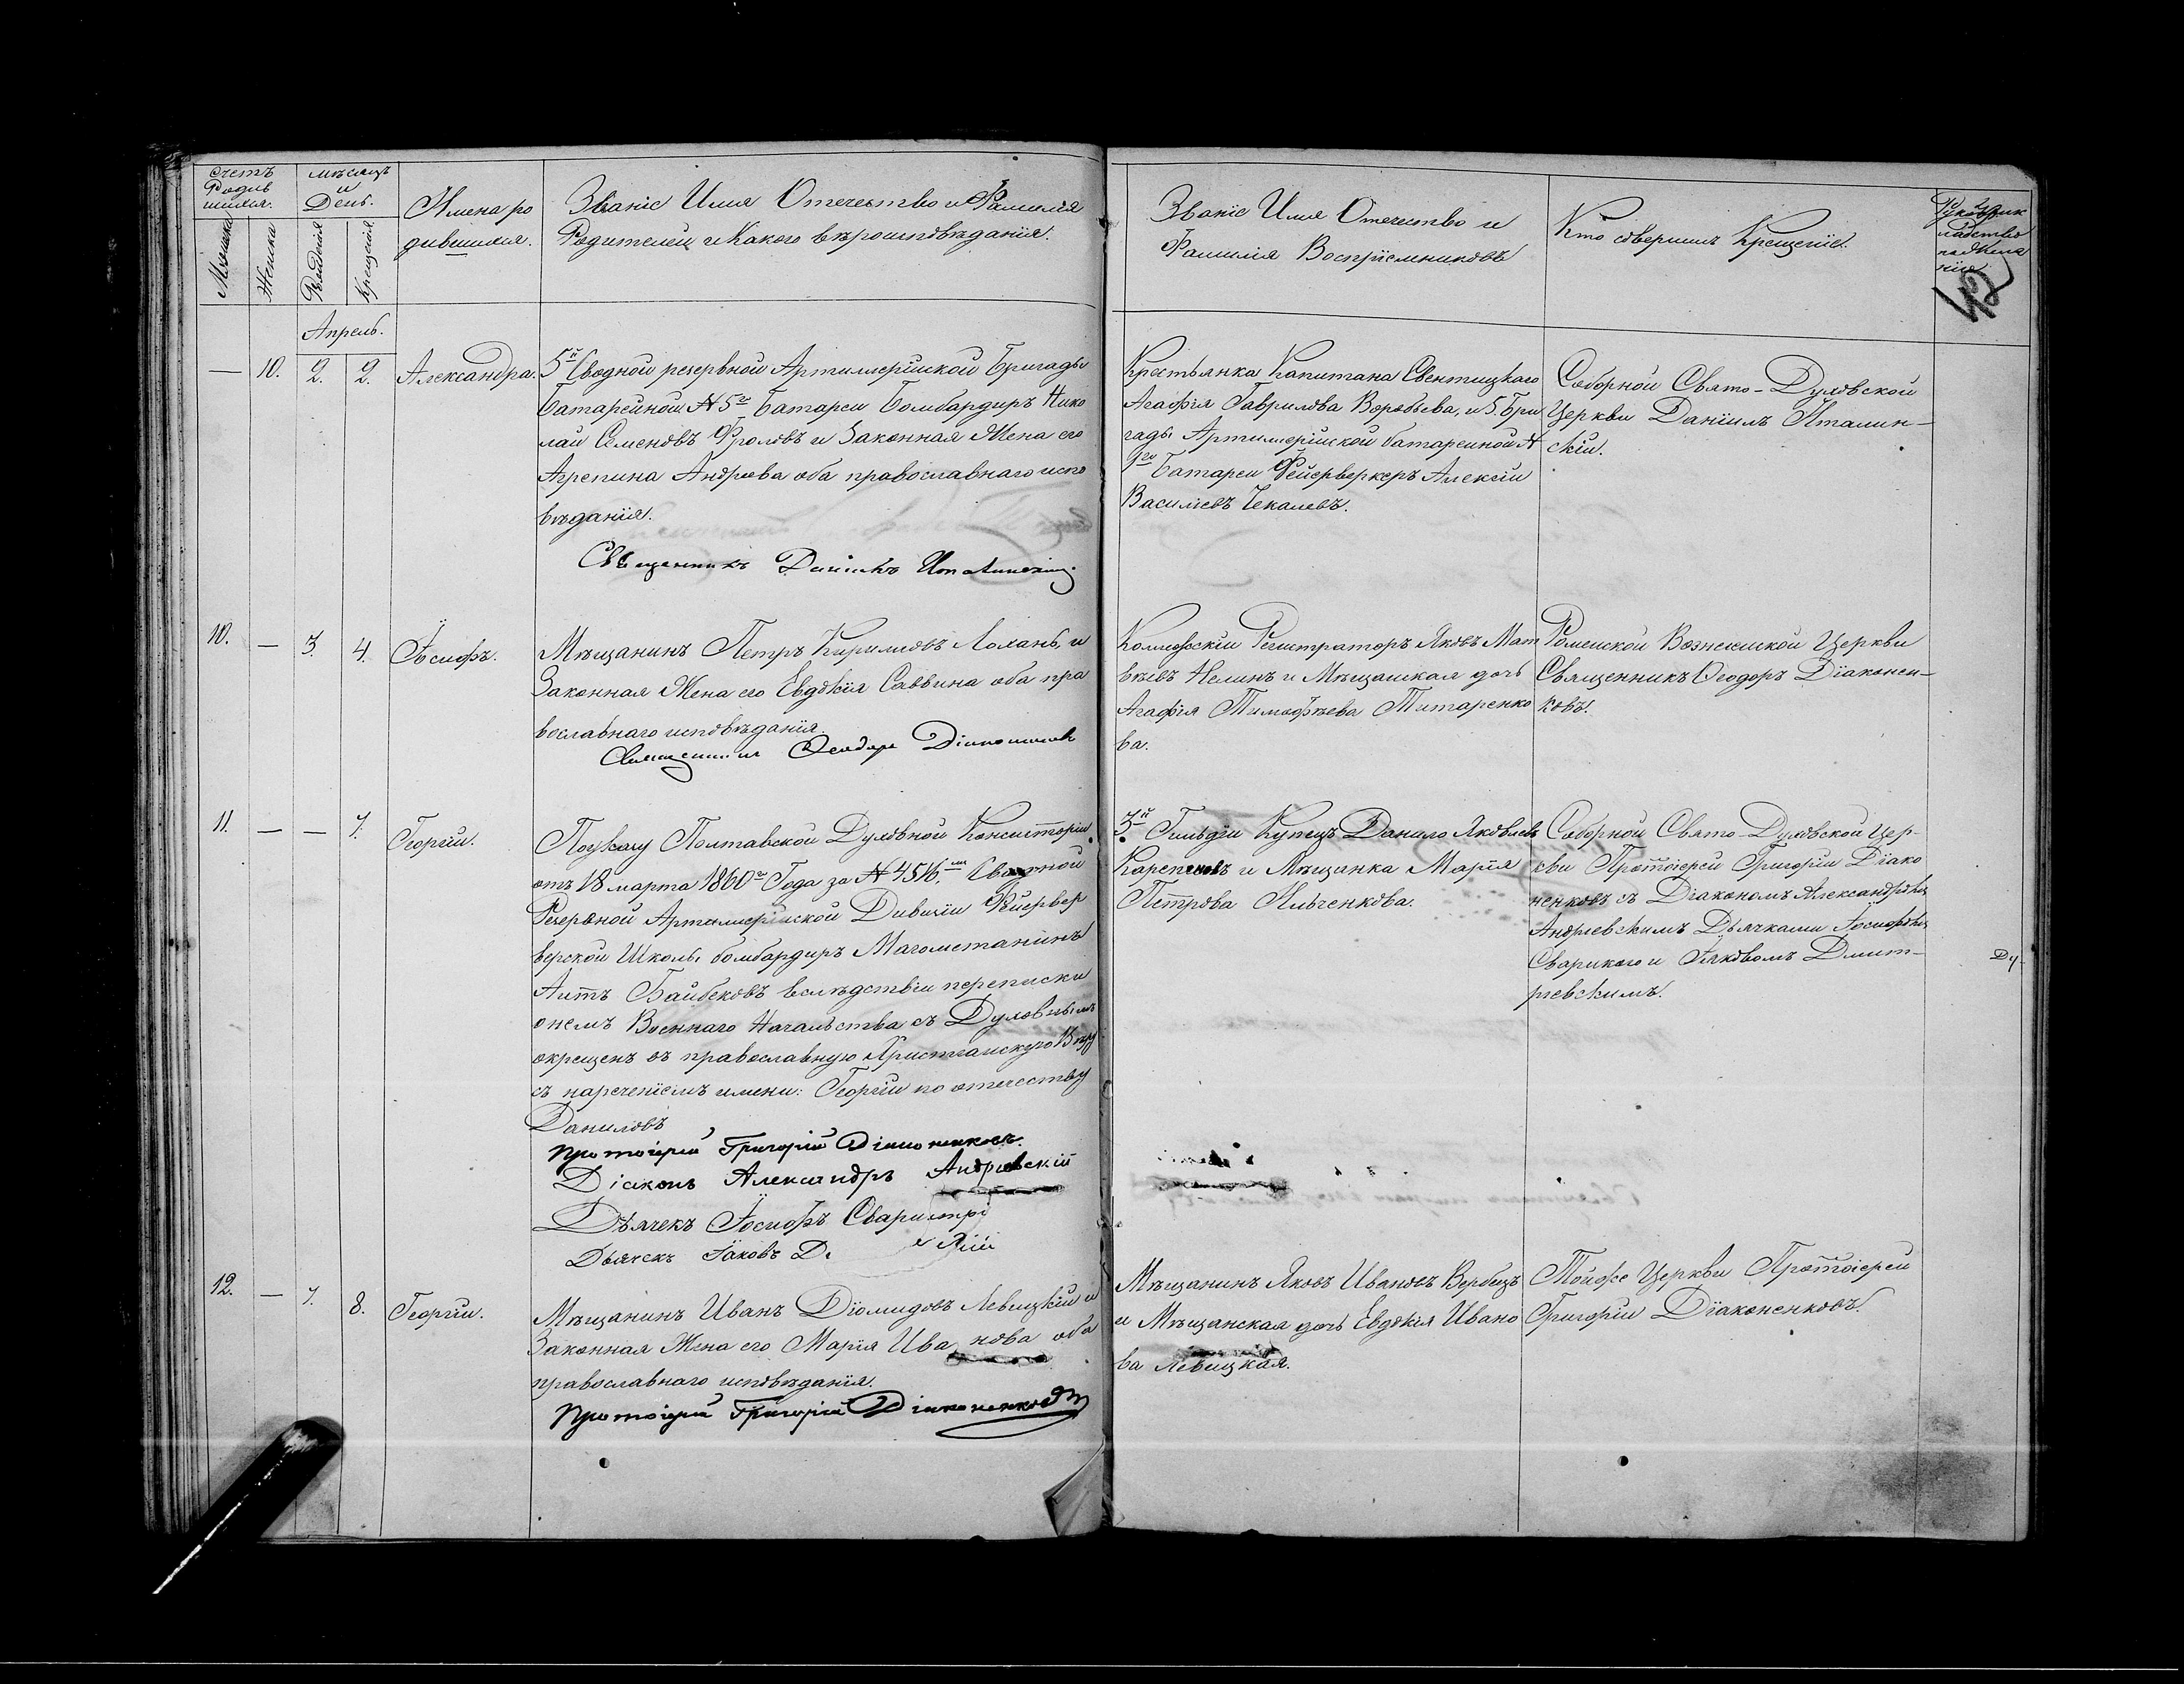 Счетъ
Родив
шихся.
мѣсяцъ
и
День.
Мужеска
Женска
Рожденія
Крещенія
Имена ро
дившихся.
Званіе Имя Отечество и Фамилія
Родителей и Какого вѣроисповѣданія.
Званіе Имя Отечество и
Фамилія Воспріемниковъ
Кто совершилъ Крещеніе.
42
Апрель.
— 10. 2. 2. Александра.
5й Сводной резервной Артиллерійской Бригады
Батарейной №5го Батареи Бомбардиръ Нико
лай Семеновъ Фроловъ и Законная Жена его
Агрепина Андреева оба православнаго испо
вѣданія.
Священникъ Даніилъ Ипалинскій
Крестьянка Капитана Свентицкаго
Агафія Гаврилова Воробьева, и 5. Бри
гады Артиллерійской батарейной №
Батареи Фейерверкеръ Алексій
Василіевъ Чекалевъ.
Соборной Свято-Духовской
Церкви Даніилъ Ипалин-
скій.
10. — 3. 4. Іосифъ.
Мѣщанинъ Петръ Кириловъ Лохань, и
Законная Жена его Евдокія Саввина оба пра
вославнаго исповѣданія.
Священникъ Ѳеодоръ Діаконенковъ
Коллежскій Регистраторъ Яковъ Мат
вѣевъ Нелинъ и Мѣщанская дочь
Агафія Тимофѣева Титаренко
ва.
Роменской Вознесенской Церкви
Священникъ Ѳеодоръ Діаконен-
ковъ.
11. — — 7. Георгій.
По указу Полтавской Духовной Консисторіи
отъ 18 марта 1860го Года за №4516, Сводной
Резервной Артиллерійской Дивизіи Фейервер
верской Школы бомбардиръ Магометанинъ
Аитъ Байбековъ вслѣдствіи переписки
онемъ Военнаго Начальства съ Духовнымъ
окрещенъ въ православную Христіанскую Вѣру
съ нареченіемъ имени: Георгій по отечеству
Даниловъ
Протоіерей Григорій Діаконенковъ.
Діаконъ Александръ Андріевскій
Дьячекъ Іосифъ
Дьячекъ Іаковъ
3й Гильдіи Купецъ Данило Яковлевъ
и Мѣщанка Марія
Петрова Ильченкова.
Соборной Свято-Духовской Цер-
кви Протоіерей Григорій Діако
ненковъ съ Діакономъ Александромъ
Андріевскимъ Дьячками Іосифомъ
и Іаковомъ Дмит-
ріевскимъ.
12. — 7. 8. Георгій.
Мѣщанинъ Иванъ Діомидовъ Левицкій и
Законная Жена его Марія Ива нова оба
православнаго исповѣданія.
Протоіерей Григорій Діаконенковъ
Мѣщанинъ Яковъ Ивановъ Вербицъ
и Мѣщанская дочь Евдокія Ивано
ва Левицкая.
Тойже Церкви Протоіерей
Григорій Діаконенковъ.